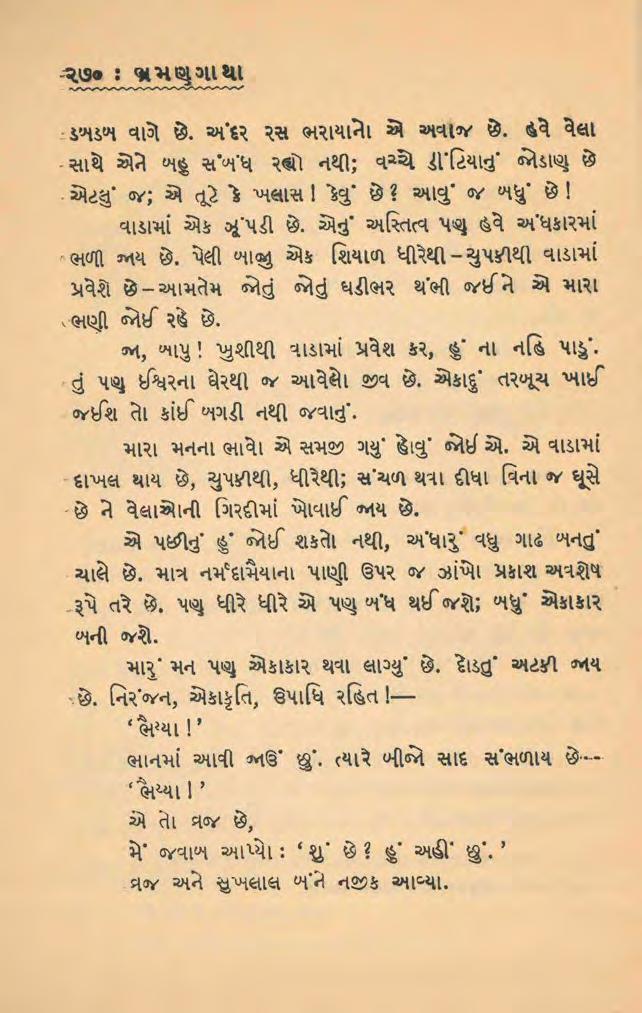 ૨૭૦ : ભ્રમણગાથા
ડબડબ વાગે છે. અંદર રસ ભરાયાનો એ અવાજ છે. હવે વેલા
સાથે એને બહુ સંબંધ રહ્યો નથી; વચ્ચે ડીંટિયાનું જોડાણ છે
એટલું જ; એ તૂટે કે ખલાસ! કેવું છે? આવું જ બધું છે!
વાડામાં એક ઝૂંપડી છે. એનું અસ્તિત્વ પણ હવે અંધકારમાં
ભળી જાય છે. પેલી બાજુ એક શિયાળ ધીરેથી–ચુપકીથી વાડામાં
પ્રવેશે છે–આમતેમ જોતું જોતું ઘડીભર થંભી જઈને એ મારા
ભણી જોઈ રહે છે.
જા, બાપુ! ખુશીથી વાડામાં પ્રવેશ કર, હું ના નહિ પાડું.
તું પણ ઈશ્વરના ઘેરથી જ આવેલો જીવ છે. એકાદું તરબૂચ ખાઈ
જઈશ તો કાંઈ બગડી નથી જવાનું.
મારા મનના ભાવો એ સમજી ગયું હોવું જોઈએ. એ વાડામાં
દાખલ થાય છે, ચુપકીથી, ધીરેથી; સંચળ થવા દીધા વિના જ ઘૂસે
છે ને વેલાઓની ગિરદીમાં ખોવાઈ જાય છે.
એ પછીનું હું જોઈ શકતો નથી, અંધારું વધુ ગાઢ બનતું
ચાલે છે. માત્ર નર્મદામૈયાના પાણી ઉપર જ ઝાંખો પ્રકાશ અવશેષ
રૂપે તરે છે. પણ ધીરે ધીરે એ પણ બંધ થઈ જશે; બધું એકાકાર
બની જશે.
મારું મન પણ એકાકાર થવા લાગ્યું છે. દોડતું અટકી જાય
છે. નિરંજન, એકાકૃતિ, ઉપાધિ રહિત!—
‘ભૈય્યા!’
ભાનમાં આવી જાઉં છું. ત્યારે બીજો સાદ સંભળાય છે---
‘ભૈય્યા!’
એ તો વ્રજ છે,
મેં જવાબ આપ્યો: ‘શું છે? હું અહીં છું.’
વ્રજ અને સુખલાલ બંને નજીક આવ્યા.